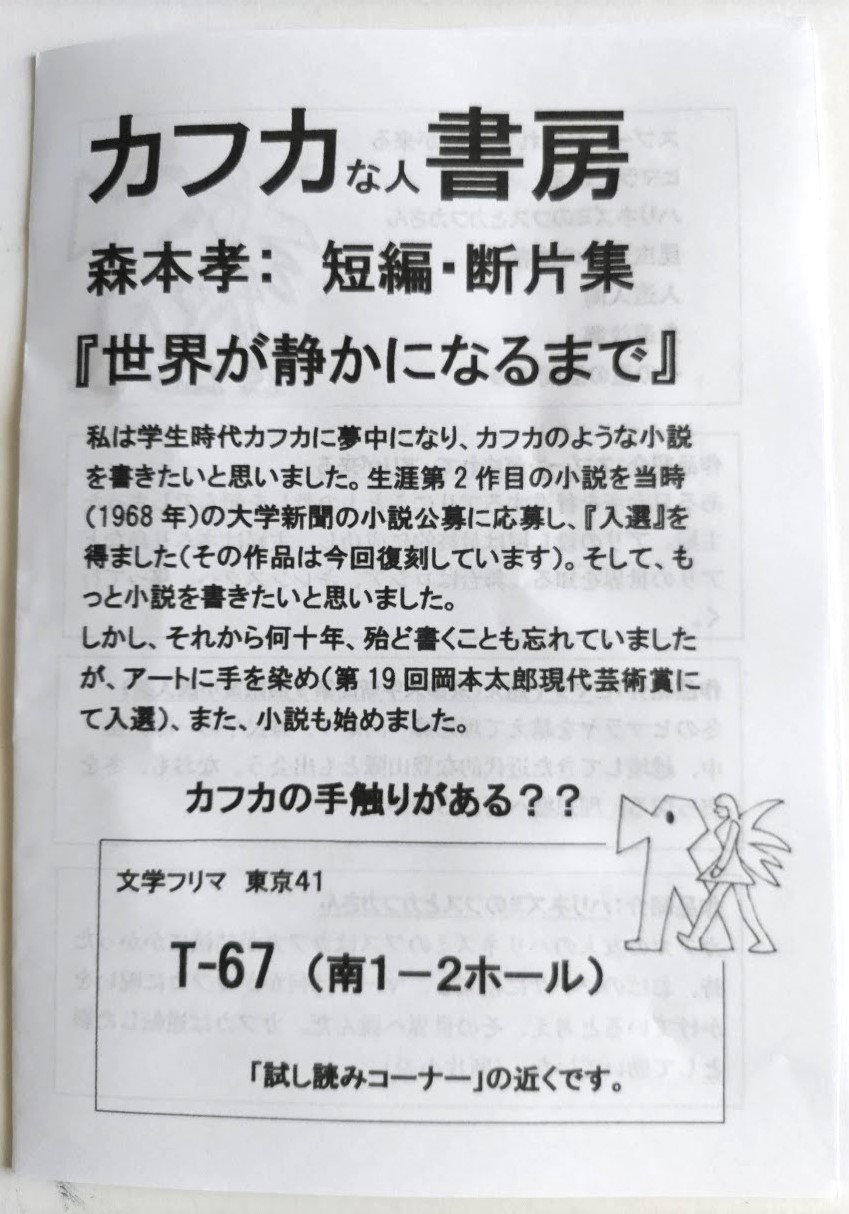 カフカな人書房
森本孝： 短編・断片集
『世界が静かになるまで』
私は学生時代カフカに夢中になり、カフカのような小説
を書きたいと思いました。生涯第２作目の小説を当時
（1968 年）の大学新聞の小説公募に応募し、『入選』を
得ました（その作品は今回復刻しています）。そして、も
っと小説を書きたいと思いました。
しかし、それから何十年、殆ど書くことも忘れていました
が、アートに手を染め（第 19 回岡本太郎現代芸術賞に
て入選）、また、小説も始めました。
カフカの手触りがある？？
文学フリマ 東京41
T-67 （南１－２ホール）
「試し読みコーナー」の近くです。